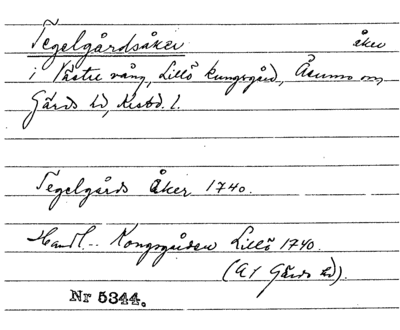 Tegelgårdsåker åker
i Västre vång, Lillö kungsgård, Åsums sn,
Gärds hd, Kristd. l.
Tegelgårds Åker 1740.
Handl. Kongsgården Lillö 1740.
(A1 Gärds hd).
Nr 5344.